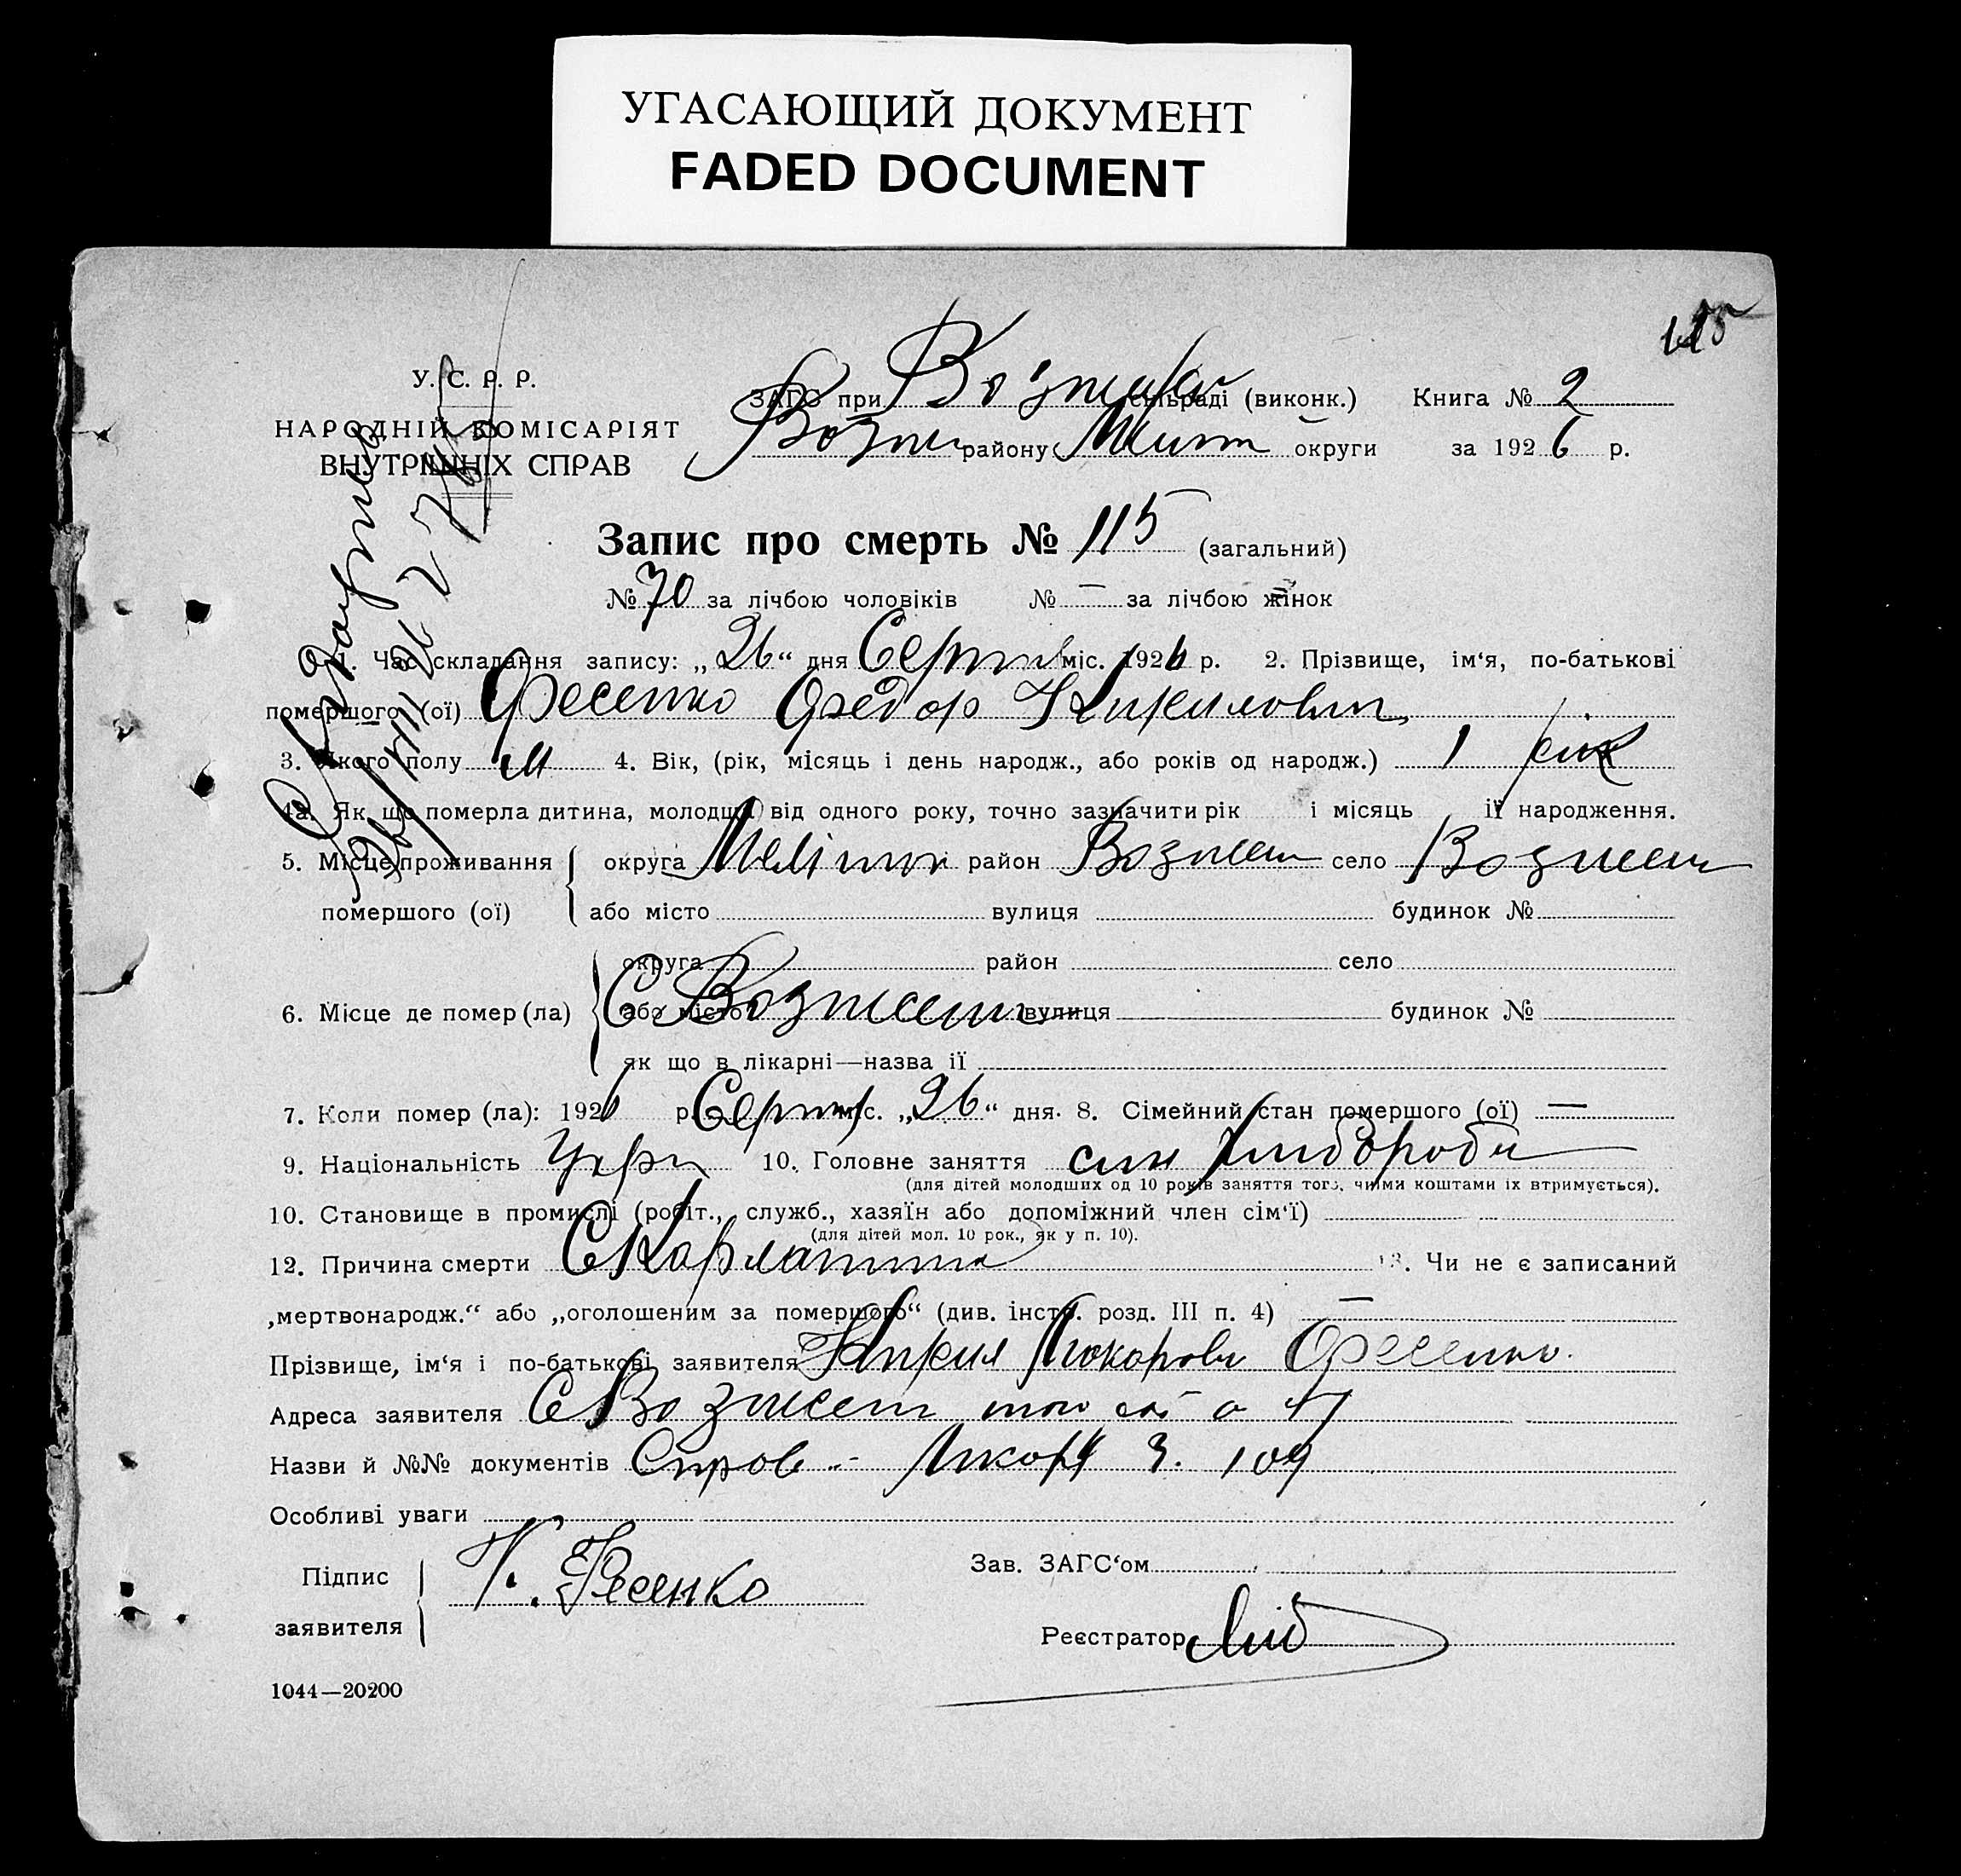 УГАСАЮЩИЙ ДОКУМЕНТ
FADED DOCUMENT
115
У. С. Р. Р.
НАРОДНІЙ КОМІСАРІЯТ
ВНУТРІШНІХ СПРАВ
ЗАГС при сільраді (виконк.) Книга № 2
району Меліт округи за 1926 р.
Запис про смерть № 115 (загальний)
№ 70 за лічбою чоловіків № — за лічбою жінок
1. Час складання запису: „26“ дня Серпня міс. 1926 р. 2. Прізвище, ім‘я, по-батькові
помершого (ої) Фесенко Федор Кирилович
3. Якого полу м 4. Вік, (рік, місяць і день народж., або років од народж.) 1 рік
4а. Як що померла дитина, молодша від одного року, точно зазначити рік і місяць її народження.
5. Місце проживання округа Мелітоп район Вознесен село Вознесен
помершого (ої) або місто вулиця будинок №
округа район село
6. Місце де помер (ла) або місто С Вознесен вулиця будинок №
як що в лікарні—назва її
7. Коли помер (ла): 1926 р. Серпня міс. „26“ дня. 8. Сімейний стан помершого (ої) —
9. Національність Укра 10. Головне заняття син хлібороба
(для дітей молодших од 10 років заняття того, чиїми коштами їх втримується).
10. Становище в промислі (робіт., служб., хазяїн або допоміжний член сім‘ї)
(для дітей мол. 10 рок., як у п. 10).
12. Причина смерти Скарлатина 13. Чи не є записаний
„мертвонародж.“ або „оголошеним за помершого“ (див. інстр. розд. III п. 4) —
Прізвище, ім‘я і по-батькові заявителя Кирил Макарович Фесенко.
Адреса заявителя С Вознесен
Назви й №№ документів Справ. Лікаря З. 109
Особливі уваги
Підпис К. Фесенко Зав. ЗАГС‘ом
заявителя Реєстратор
1044—20200